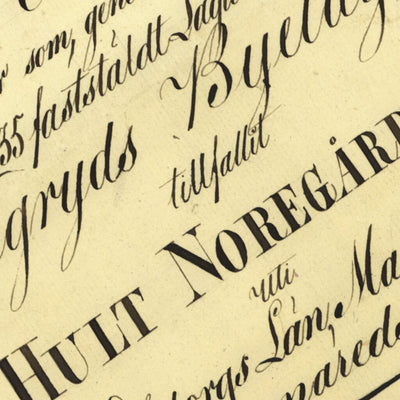 som, genom
35 faststäldt Laga
gryds Byelag
tillfallit
HULT NOREGÅRD
uti
borgs Län, Ma
nared